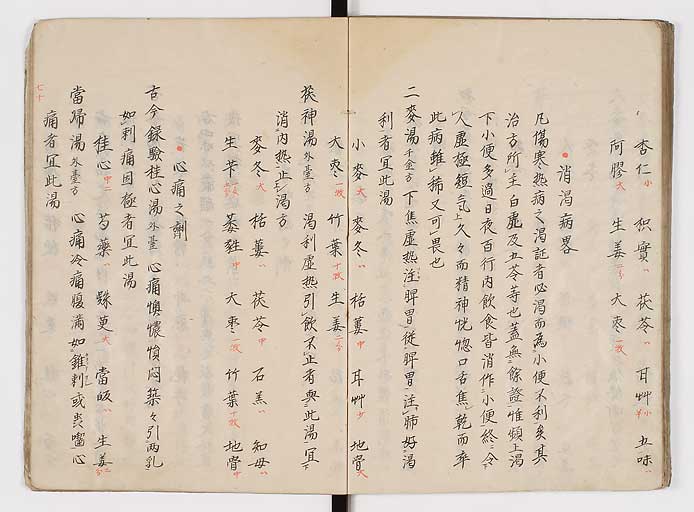 杏仁小 枳實〃 茯苓〃 耳艸小 五味〃
阿膠大 生姜二分 大枣一枚
消渇病畧
凡傷寒熱病之渇証者必渇而為小便不利矣其
治方所主白虎及五苓等也蓋無餘證惟頻上渇
下小便多過日夜百行内飲食皆消作小便終令
人虚極短气上久々而精神恍惚口舌焦乾而卒
此病雖稀又可畏也
二麥湯千金方 下焦虚热注脾胃從脾胃注肺好渇
利者宜此湯
小麥大 麥冬〃 栝蔞〃 耳艸少 地骨大
大枣一枚 竹葉十枚 生姜二分
茯神湯外臺方 渇利虚热引飲不止者與此湯宜
消内热止渇方
麥冬大 栝蔞〃 茯苓中 石羔〃 知母〃
生芐 萎蕤中 大枣一枚 竹葉十枚 地骨中
心痛之劑
古今録驗桂心湯外臺 心痛懊憹愤闷築々引两乳
如刺痛困極者宜此湯
桂心中 芍藥〃 茱萸大 當皈〃 生姜二分
當歸湯外臺方 心痛冷痛腹满如錐刺或 心
痛者宜此湯
七十